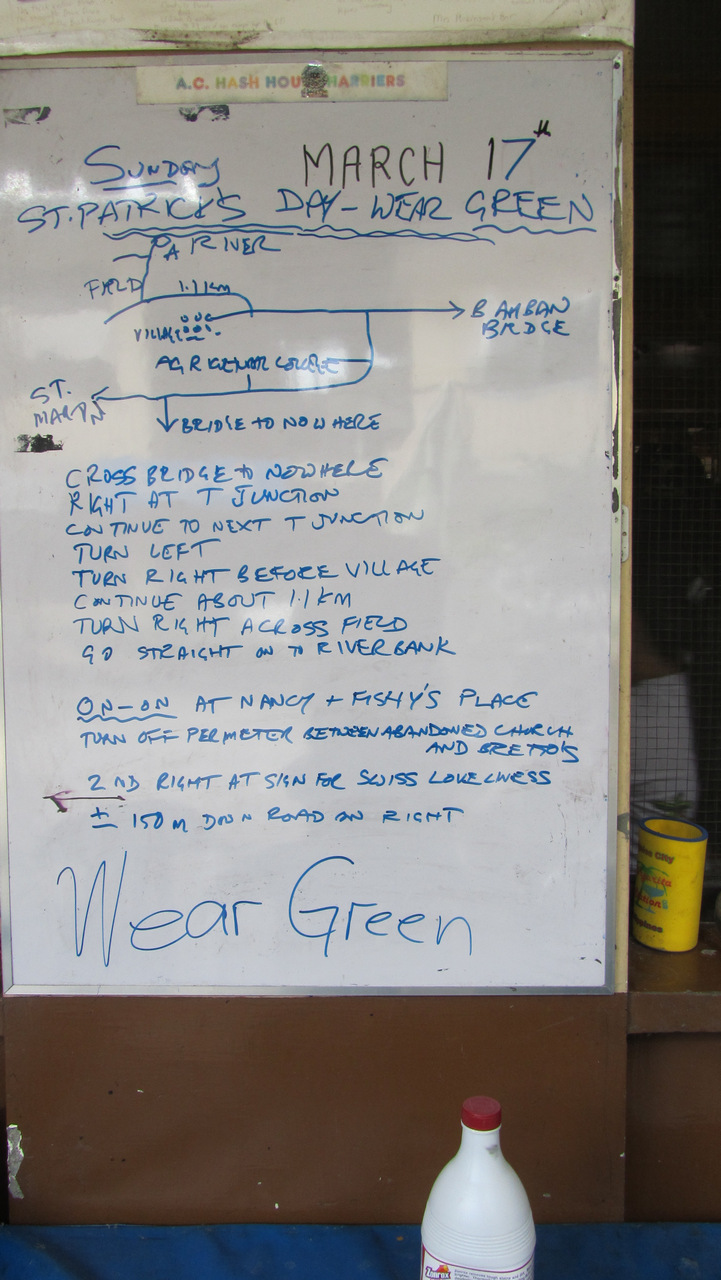 A.C. HASH HOUSE HARRIERS
SUNDAY MARCH 17th
ST. PATRICK'S DAY - WEAR GREEN
A RIVER
FIELD
1.1 KM
BAMBAN
BRIDGE
VILLAGE
ST.
BRIDGE TO NOWHERE
CROSS BRIDGE TO NOWHERE
RIGHT AT T JUNCTION
CONTINUE TO NEXT T JUNCTION
TURN LEFT
TURN RIGHT BEFORE VILLAGE
CONTINUE ABOUT 1.1 KM
TURN RIGHT ACROSS FIELD
GO STRAIGHT ON TO RIVERBANK
ON-ON AT NANCY + FISHY'S PLACE
TURN OFF PERIMETER BETWEEN ABANDONED CHURCH
AND BRETTO'S
2ND RIGHT AT SIGN FOR SWISS LOVELINESS
± 150 M DOWN ROAD ON RIGHT
Wear Green